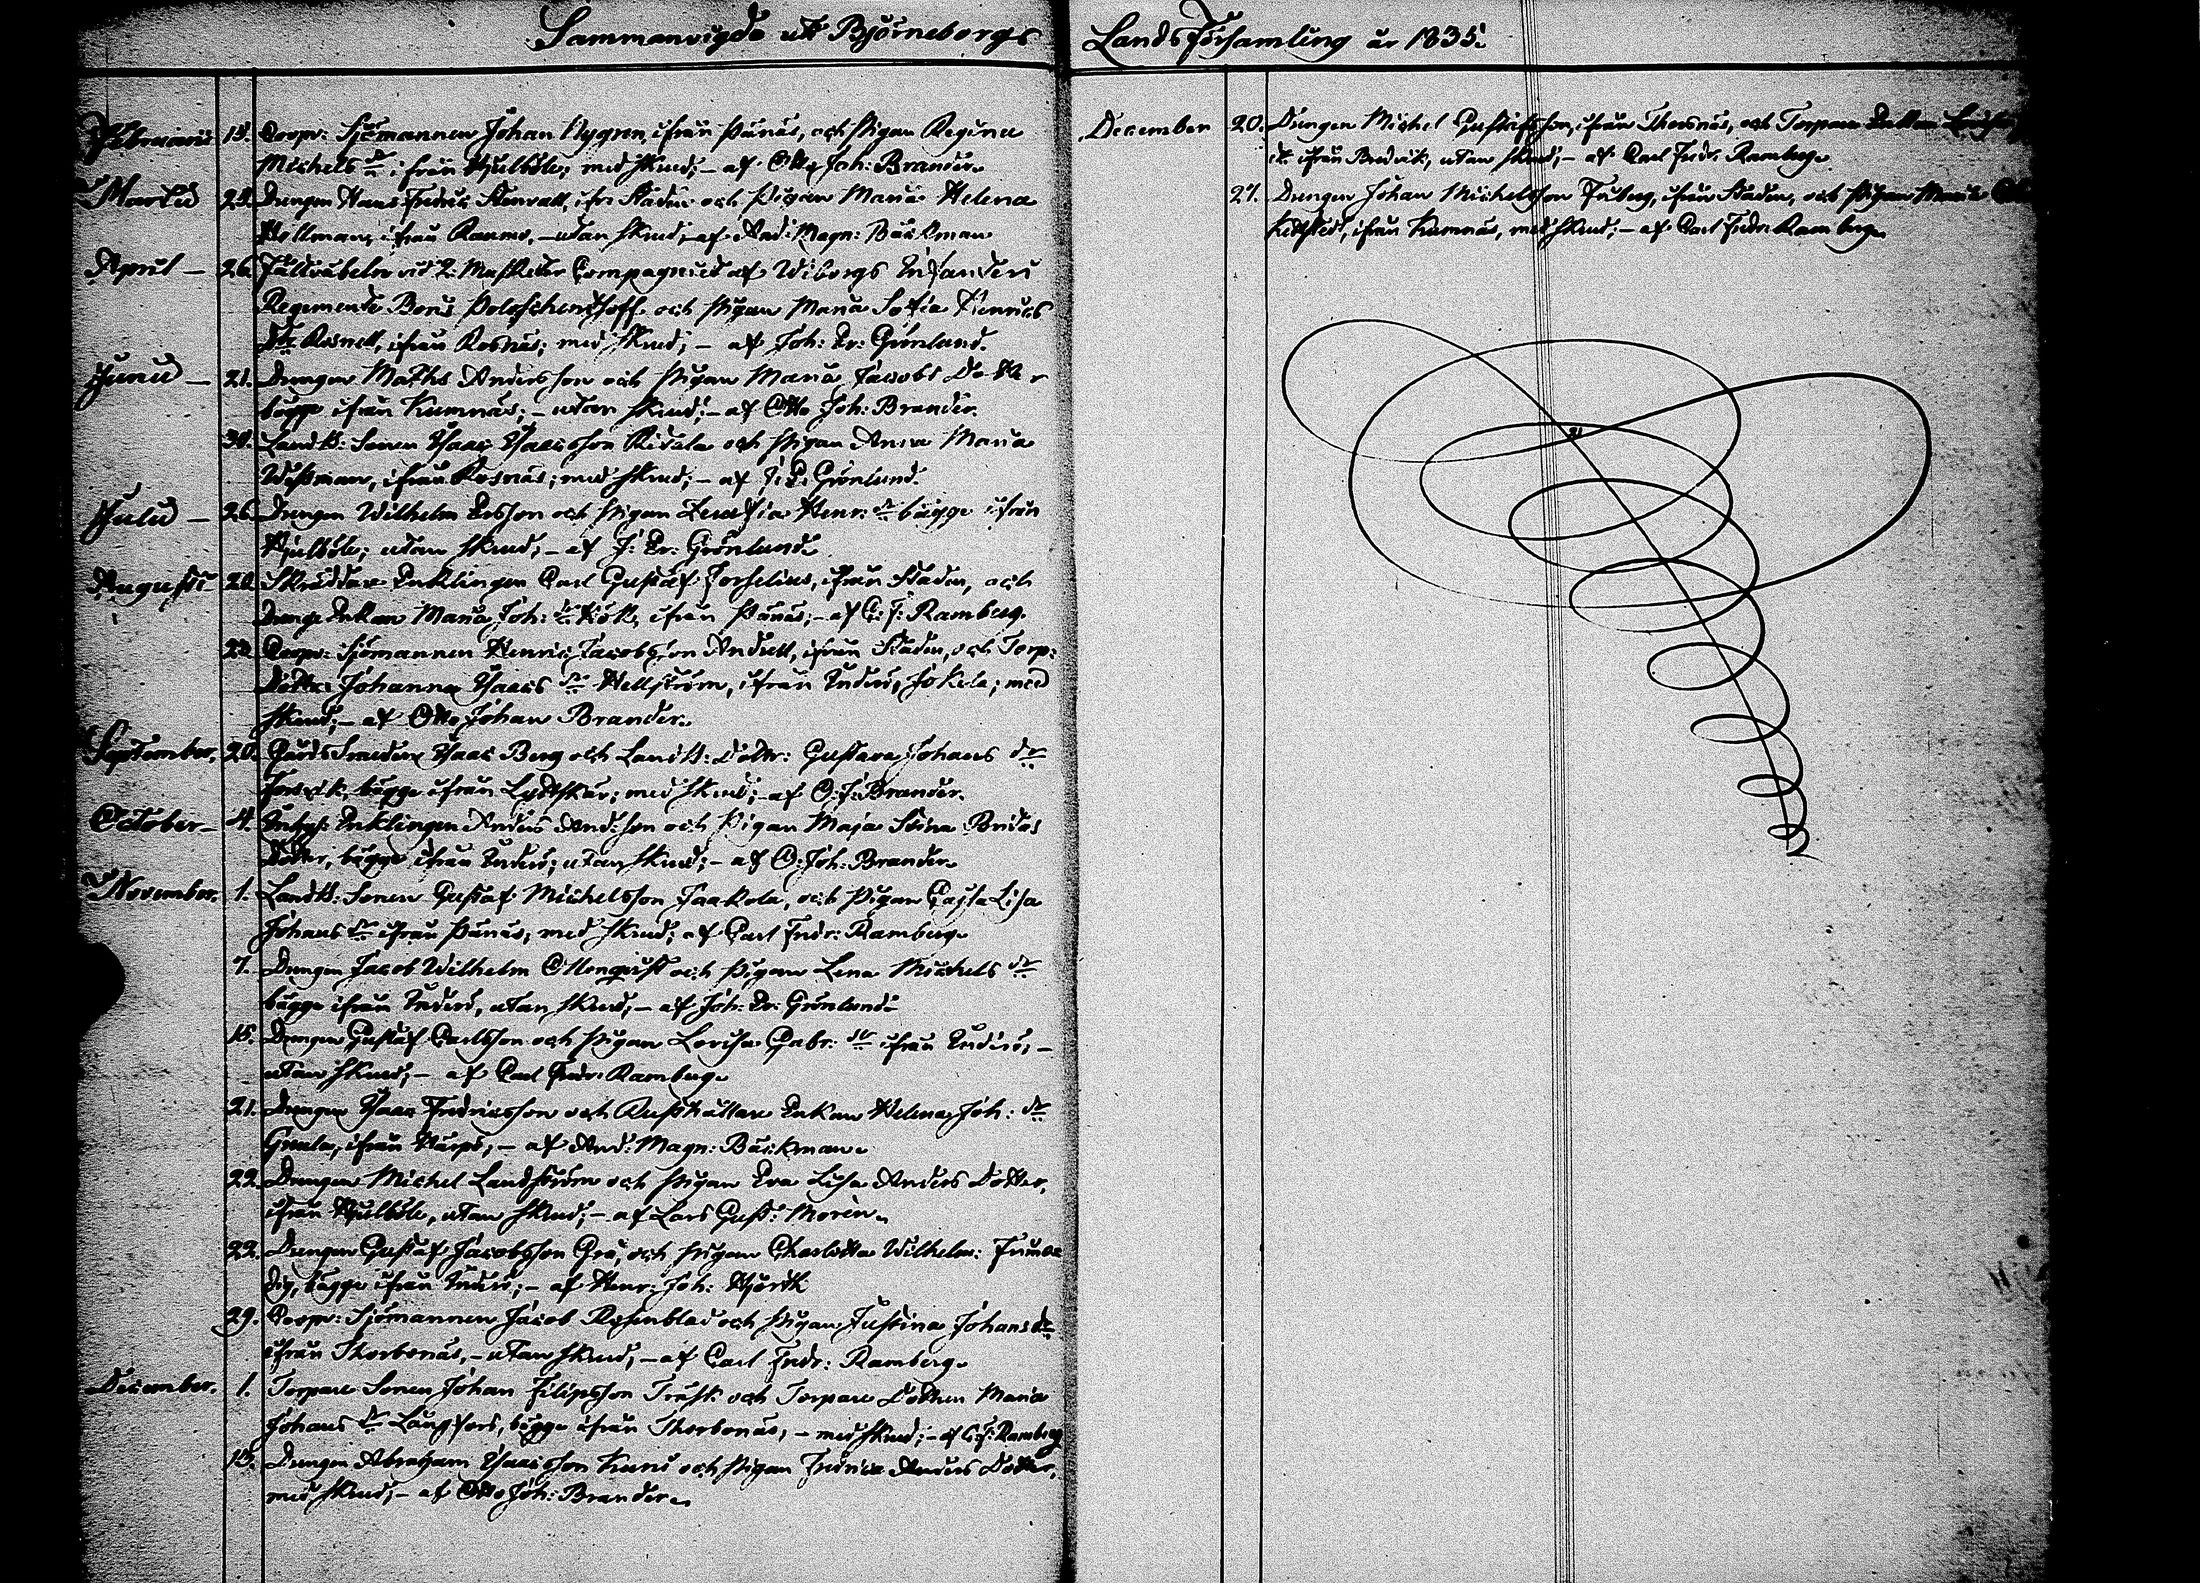 Sammanvigde uti Björneborgs Landsförsamling år 1835.
Februarii 15. Coopv: Sjömannen Johan Nygren, ifrån Pånäs, och Pigan Regina
Michels dr ifrån Hjulböle; med skud; – af Otto Joh: Brander.
Martii 29. Drängen Hans Fredric Stenvall, ifrån Staden och Pigan Maria Helena
Hellman, ifrån Raumo, – utan skud; – af And: Magn: Bäckman
April – 26. Fältväbeln vid 2: Compagniet af Wiborgs Infanteri
Regemente Boris och Pigan Maria Sofia Henrics
dr Rosnell, ifrån Rosnäs; med skud; – af Joh: Er: Grönlund.
Junii – 21. Drängen Maths Andersson och Pigan Maria Jacobs Dotter
bägge ifrån Kumnäs; – utan skud; – af Otto Joh: Brander.
30. Landtb: Sonen Isaac Isaacsson Ridala och Pigan Anna Maria
Wessman, ifrån Rosnäs; med skud; – af J: E: Grönlund.
Julii – 26. Drängen Wilhelm Ersson och Pigan Henr: dr bägge ifrån
Hjulböle; utan skud; – af J: Er: Grönlund.
Augusti 20. Skräddare Enklingen Carl Gustaf Forselius, ifrån Staden, och
Drenge Enkan Maria Joh: dr Kök, ifrån Pånäs; – af C: F: Ramberg.
23. Coopv: Sjömannen Henric Jacobsson Andell, ifrån Staden, och Torp:
Dottr: Johanna Isaacs dr Hellström, ifrån Inderö, Jokela; med
skud; – af Otto Johan Brander.
September. 20. Gårds Smeden Isaac Berg och Landtb: Dottr: Gustava Johans dr
bägge ifrån Lyttskär; med skud; – af O: J: Brander.
October – 4. Enklingen Anders Andersson och Pigan Maja Stina
Dotter, bägge ifrån Inderö; utan skud; – af O: Joh: Brander.
November. 1. Landtb: Sonen Gustaf Michelsson Jaakola, och Pigan Cajsa Lisa
Johans dr ifrån Pånäs; med skud; af Carl Fredr: Ramberg.
7. Drängen Jacob Wilhelm Ottenqvist och Pigan Lena Michels dr
bägge ifrån Inderö, utan skud; – af Joh: Er: Grönlund.
15. Drängen Gustaf Carlsson och Pigan Lovisa Gabr: dr ifrån Inderö; –
utan skud; – af Carl Fredr: Ramberg.
21. Drängen Isaac Fredricsson och Rusthållare Enkan Helena Joh: dr
ifrån Harpö; – af And: Magn: Bäckman.
22. Drängen Michel Landström och Pigan Eva Lisa Anders Dotter,
ifrån Hjulböle, utan skud; – af Lars Gust: Morén.
22. Drängen Gustaf Jacobsson Grå, och Pigan Charlotta Wilhelm:
bägge ifrån Inderö; – af Henr: Joh: Hjorth
29. Coopv: Sjömannen Jacob Rosenblad och Pigan Justina Johans dr
ifrån Thorbonäs, – utan skud; – af Carl Fredr: Ramberg.
December. 1. Torpare Sonen Johan Filipsson Träsk och Torpare Dottren Maria
Johans dr Långfors, bägge ifrån Thorbonäs, – med skud; – af C: F: Ramberg
13. Drängen Abraham Isaacsson och Pigan Fredrica Anders Dotter,
med skud; – af Otto Joh: Brander.
December 20. Drängen Michel Gustafsson, ifrån Thorsnäs, och Torpare Enkan
ifrån utan skud; – af Carl Fredr: Ramberg.
27. Drängen Johan Michelsson ifrån Staden, och Pigan Maria
ifrån Kumnäs, med skud; – af Carl Fredr: Ramberg.